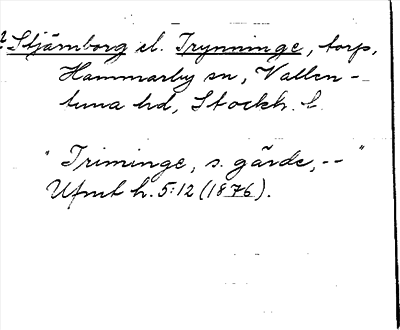 ? Stjärnborg el. Trynninge, torp,
Hammarby sn, Vallen-
tuna hd, Stockh. l.
" Triminge, s. gärde, -- "
Ufmt h. 5:12 (1876).